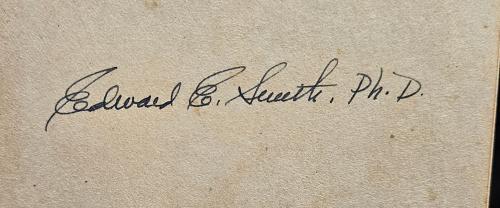 Edward E. Smith, Ph.D.